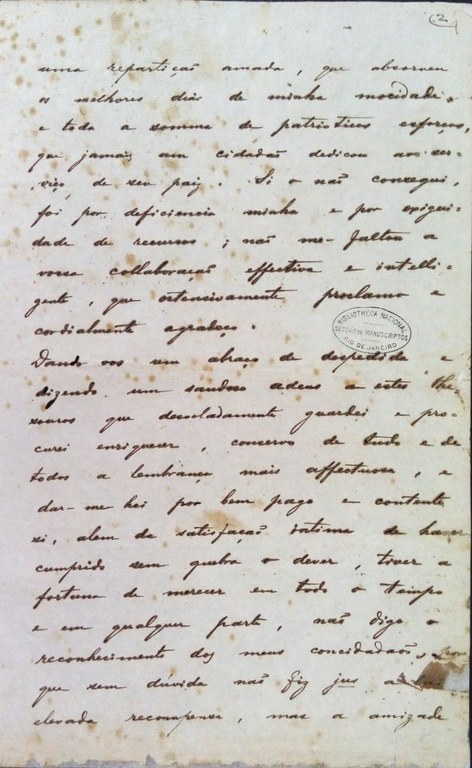 2
uma repartição amada, que absorveu
os melhores dias de minha mocidade,
e toda a somma de patrioticos esforços,
que jamais um cidadão dedicou ao ser-
viço de seu paiz. Si o não consegui,
foi por deficiencia minha e por exigui-
dade de recursos; não me faltou a
vossa collaboração effectiva e intelli-
gente, que ostensivamente proclamo e
cordialmente agradeço.
BIBLIOTHECA NACIONAL
SECÇÃO DE MANUSCRIPTOS
RIO DE JANEIRO
Dando-vos um abraço de despedida e
dizendo um saudoso adeus a estes the-
souros que desveladamente guardei e pro-
curei enriquecer, conservo de tudo e de
todos a lembrança mais affectuosa, e
dar-me hei por bem pago e contente
si, alem da satisfação intima de haver
cumprido sem quebra o dever, tiver a
fortuna de merecer em todo o tempo
e em qualquer parte, não digo o
reconhecimento dos meus concidadãos,
que sem dúvida não fiz jus a
elevada recompensa, mas a amizade